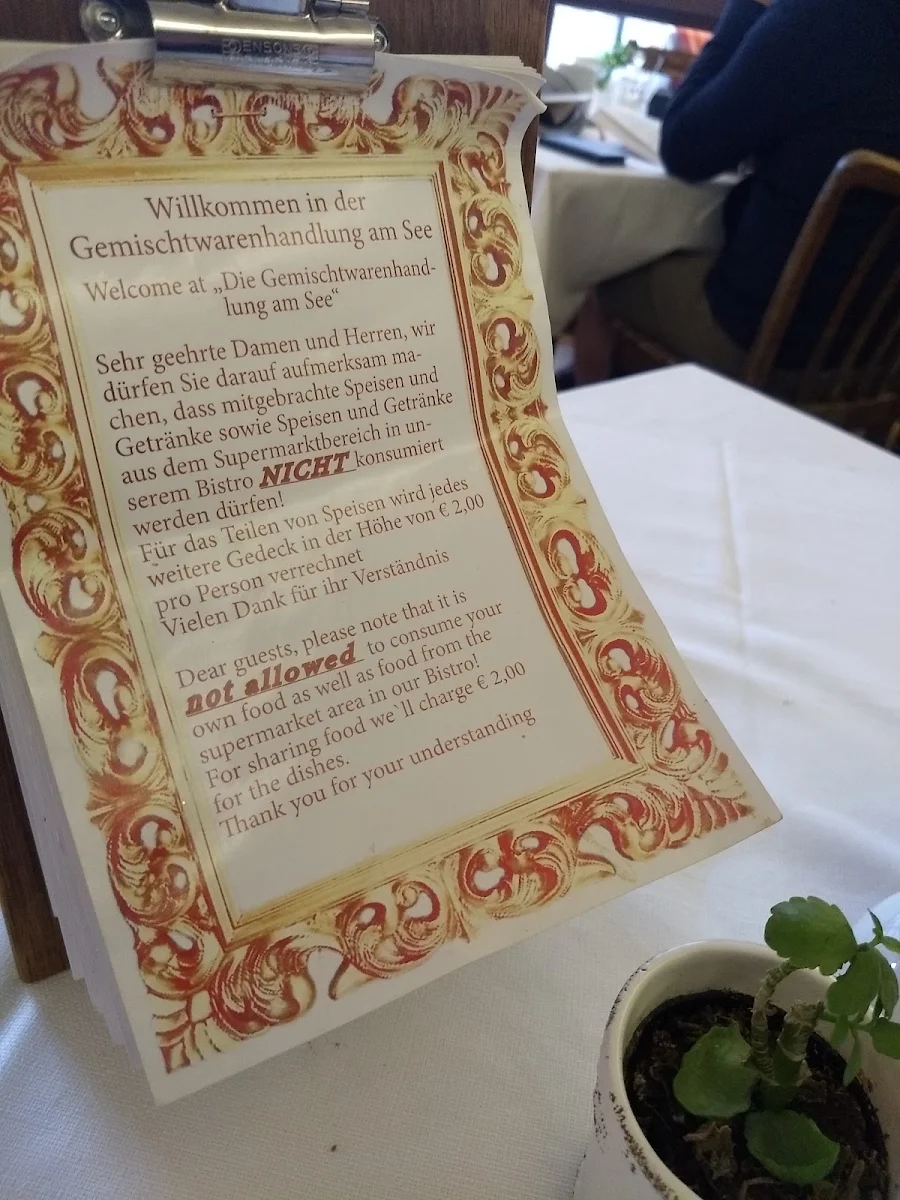 Willkommen in der
Gemischtwarenhandlung am See
Welcome at „Die Gemischtwarenhand-
lung am See“
Sehr geehrte Damen und Herren, wir
dürfen Sie darauf aufmerksam ma-
chen, dass mitgebrachte Speisen und
Getränke sowie Speisen und Getränke
aus dem Supermarktbereich in un-
serem Bistro NICHT konsumiert
werden dürfen!
Für das Teilen von Speisen wird jedes
weitere Gedeck in der Höhe von € 2,00
pro Person verrechnet
Vielen Dank für ihr Verständnis
Dear guests, please note that it is
not allowed to consume your
own food as well as food from the
supermarket area in our Bistro!
For sharing food we`ll charge € 2,00
for the dishes.
Thank you for your understanding